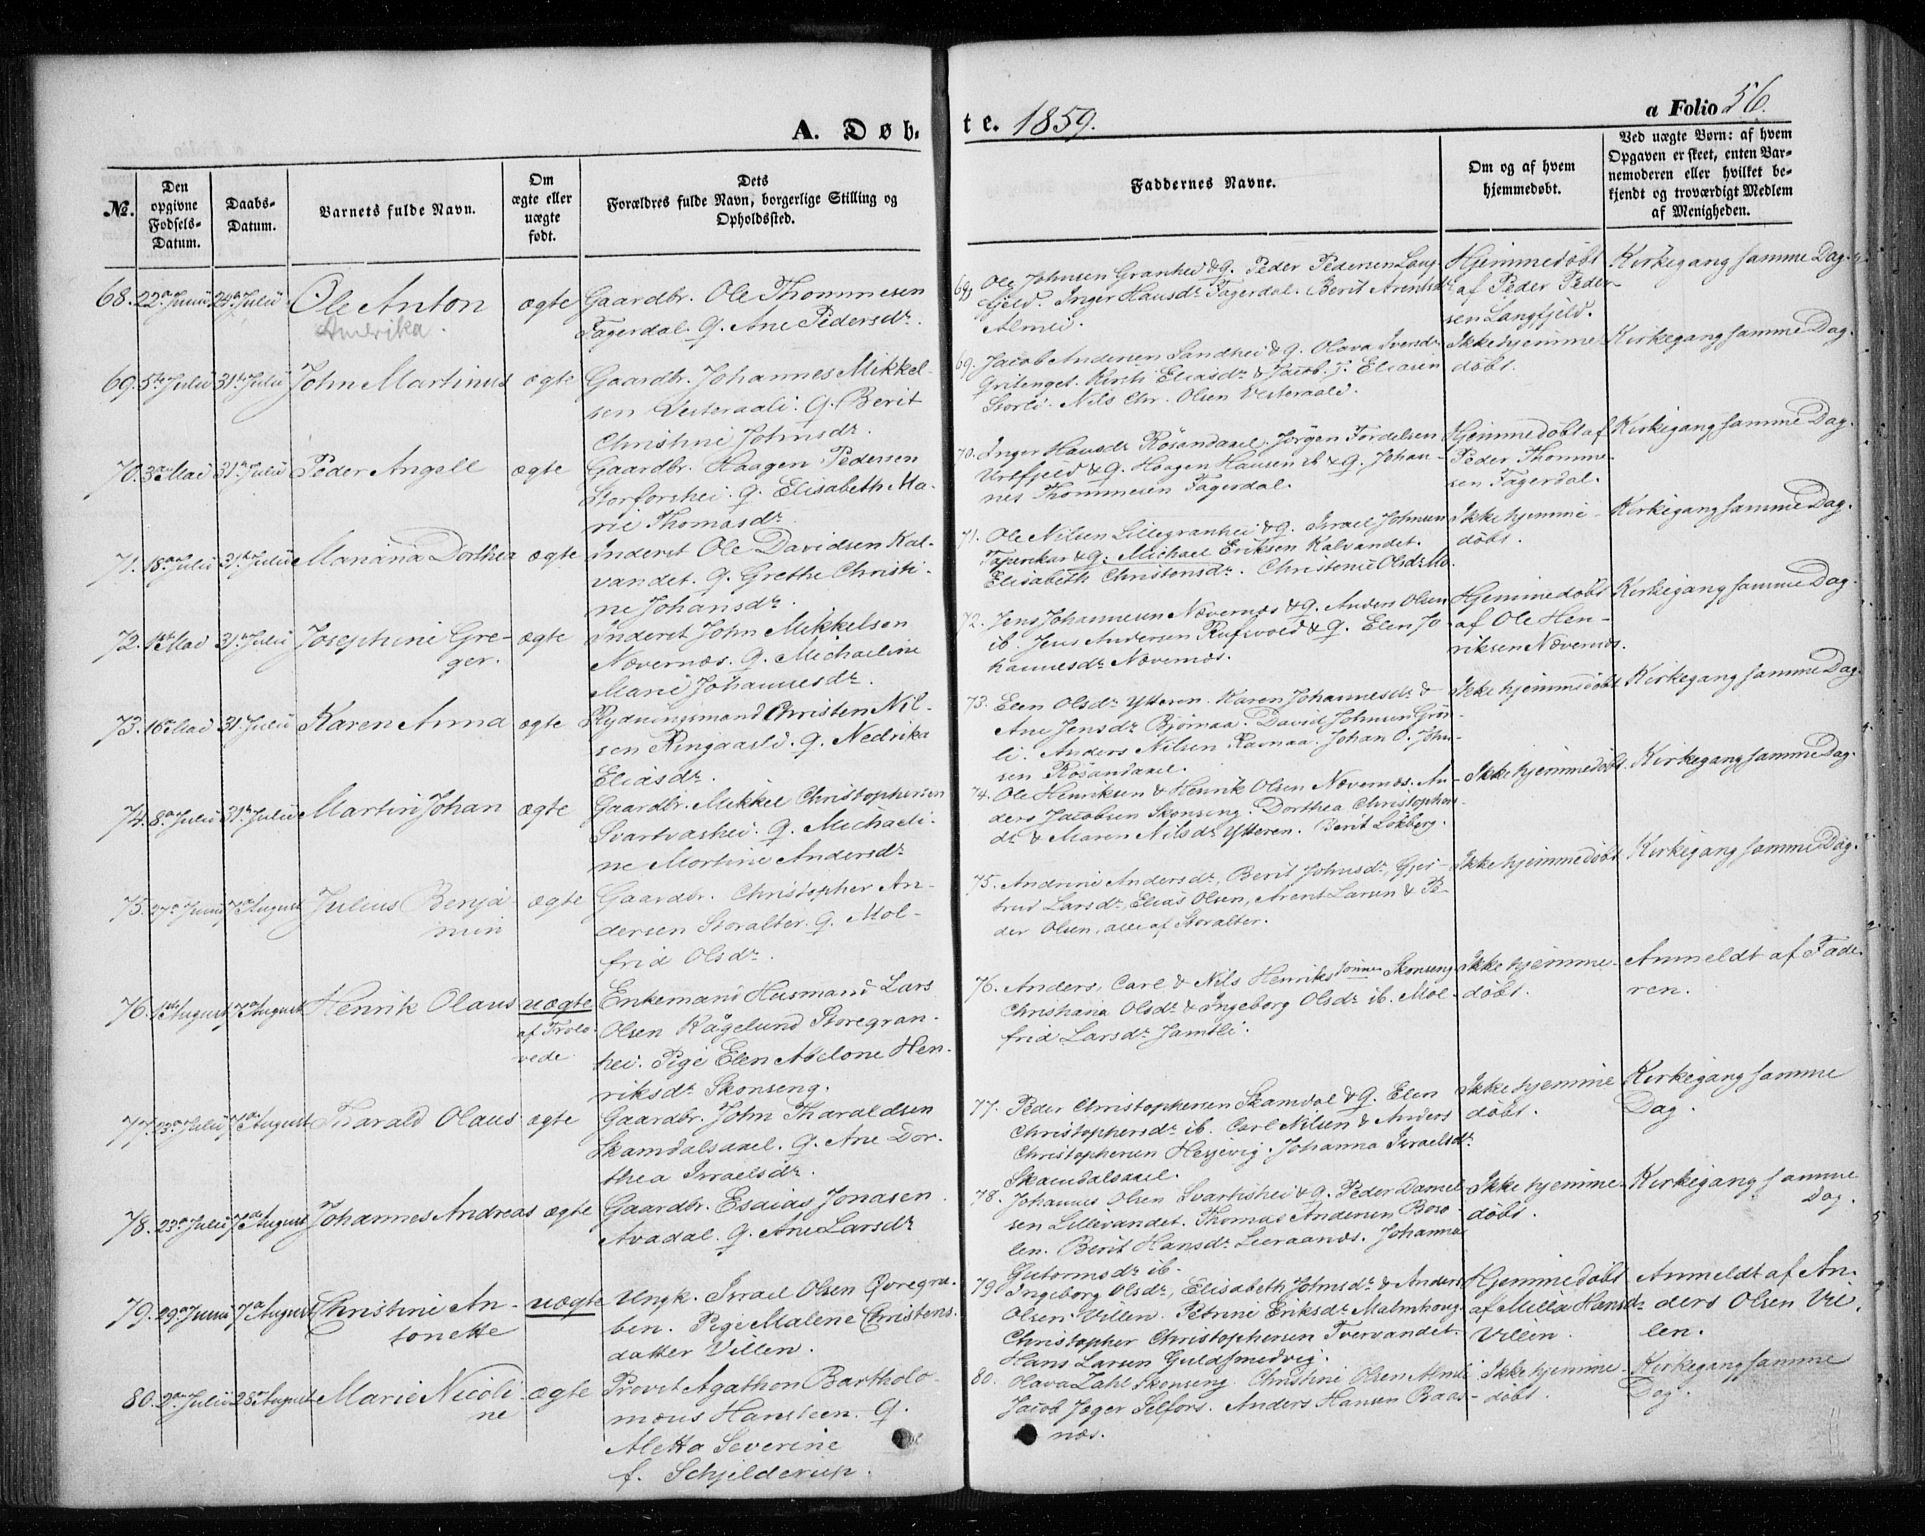 A. Døb-
te. 1859.
a Folio 56.
No.
Den opgivne Fødsels-Datum.
Daabs-Datum.
Barnets fulde Navn.
Om ægte eller uægte født.
Dets Forældres fulde Navn, borgerlige Stilling og Opholdssted.
Faddernes Navne.
Om og af hvem hjemmedøbt.
Ved uægte Børn: af hvem Opgaven er skeet, enten Barnemoderen eller hvilket bekjendt og troværdigt Medlem af Menigheden.
68. 22de Junii 24de Julii Ole Anton ægte Gaardbr. Ole Thommesen
Amerika. Fagerdal. Q. Ane Pedersdr.
68. Ole Johnsen Granhei & Q. Peder Pedersen Lang-
fjeld. Inger Hansdr Fagerdal. Berit Arentsdr
Almli.
Hjemmedøbt
af Peder Peder-
sen Langfjeld.
Kirkegang samme Dag.
69. 5te Julii 31te Julii John Martinus ægte Gaardbr. Johannes Mikkel-
sen Vesteraali. Q. Berit
Christine Johnsdr.
69. Jacob Andersen Sandhei & Q. Olava Iversdr
Kirsti Eliasdr & Jacob Eliasen
Storli. Nils Chr. Olsen Vesteraali.
Ikke hjemme
døbt.
Kirkegang samme Dag.
70. 3die Mai 31te Julii Peder Angell ægte Gaardbr. Haagen Pedersen
Storforshei. Q. Elisabeth Ma-
rie Thomasdr
70. Inger Hansdr Røsandaxel. Jørgen Fordelsen
Urtfjeld & Q. Haagen Hansen ib & Q. Johan-
nes Thommesen Fagerdal.
Hjemmedøbt af
Peder Thomme-
sen Fagerdal.
Kirkegang samme Dag.
71. 18de Julii 31te Julii Mariana Dorthea ægte Inderst Ole Davidsen Kal-
vandet. Q. Grethe Christi-
ne Johansdr.
71. Ole Nilsen Lillegranhei & Q. Israel Johnsen
& Q. Michael Eriksen Kalvandet.
Elisabeth Christensdr. Christence Olsdr Mo.
Ikke hjemme-
døbt.
Kirkegang samme Dag.
72. 1ste Mai 31te Julii Josephine Gre- ægte Inderst John Mikkelsen
ger. Nævernæs. Q. Michaeline
Marie Johannesdr.
72. Jens Johannesen Nævernæs & Q. Anders Olsen
ib. Jens Andersen Rufsvold & Q. Elen Jo-
hannesdr Nævernæs.
Hjemmedøbt
af Ole Hen-
riksen Nævernæs.
Kirkegang samme Dag.
73. 16de Mai 31te Julii Karen Anna ægte Rydningsmand Christen Nil-
sen Ringaasli. Q. Nedrika
Eliasdr.
73. Elen Olsdr Ytteren. Karen Johannesdr &
Ane Jensdr Bjørnaa. David Johnsen Grøn-
li. Anders Nilsen Ravnaa. Johan O. John-
sen Røsandaxel.
Ikke hjemmedøbt
Kirkegang samme Dag.
74. 8de Julii 31te Julii Martin Johan ægte Gaardbr. Mikkel Christophersen
Svartvashei. Q. Michaeli-
ne Martine Andersdr
74. Ole Henriksen & Henrik Olsen Nævernæs. An-
ders Jacobsen Skonseng. Dorthea Christophers-
dr & Maren Nilsdr Ytteren. Berit Løkberg.
Ikke hjemmedøbt.
Kirkegang samme Dag.
75. 27de Junii 7de August Julius Benja ægte Gaardbr. Christopher An-
min dersen Storalter. Q. Mol-
frid Olsdr.
75. Andrine Andersdr, Berit Johnsdr, Gjer-
trud Larsdr, Elias Olsen, Arent Larsen & Pe-
der Olsen, alle af Storalter.
Ikke hjemmedøbt
Kirkegang samme Dag.
76. 1ste August 7de August Henrik Olaus uægte Enkemand Husmand Lars
af Trolo- Olsen Kågelund Storegran-
vede hei. Pige Elen Abelone Hen-
riksdr Skonseng.
76. Anders, Carl & Nils Henriks Sønner Skonseng
Christiana Olsdr & Ingeborg Olsdr ib. Mol-
frid Larsdr Jamtli.
Ikke hjemme-
døbt.
Anmeldt af Fade-
ren.
77. 23de Julii 7de August Tharald Olaus ægte Gaardbr. John Tharaldsen
Skamdalsaxel. Q. Ane Dor-
thea Israelsdr.
77. Peder Christophersen Skamdal & Q. Elen
Christophersdr ib. Carl Nilsen & Anders
Christophersen Hesjevig. Johanna Israelsdr
Skamdalsaxel.
Ikke hjemme
døbt.
Kirkegang samme
Dag.
78. 23de Julii 7de August Johannes Andreas ægte Gaardbr. Esaias Jonasen
Avadal. Q. Ane Larsdr
78. Johannes Olsen Svartishei & Q. Peder Daniel-
sen Lillevandet. Thomas Andersen Boso-
len. Berit Hansdr Leeraanæs. Johanna
Gutormsdr ib.
Ikke hjemme-
døbt.
Kirkegang samme
Dag.
79. 29de Junii 7de August Christine An- uægte Ungk. Israel Olsen Øvregru-
tonette ben. Pige Malene Christens-
datter Villen.
79 Ingeborg Olsdr, Elisabeth Johnsdr & Anders
Olsen Villen. Petrine Eriksdr Malmhoug.
Christopher Christophersen Tvervandet.
Hans Larsen Guldsmedvig.
Hjemmedøbt
af Milla Hansdr
Villen.
Anmeldt af An-
ders Olsen Vil-
len.
80. 2den Julii 28de August Marie Nicoli- ægte Provst Agathon Bartholo-
ne mæus Hansteen. Q.
Aletta Severine
f. Schjelderup.
80. Olava Zahl Skonseng. Christine Olsen Almli
Jacob Jæger Selfors. Anders Hansen Baas-
næs.
Ikke hjemme-
døbt.
Kirkegang samme
Dag.